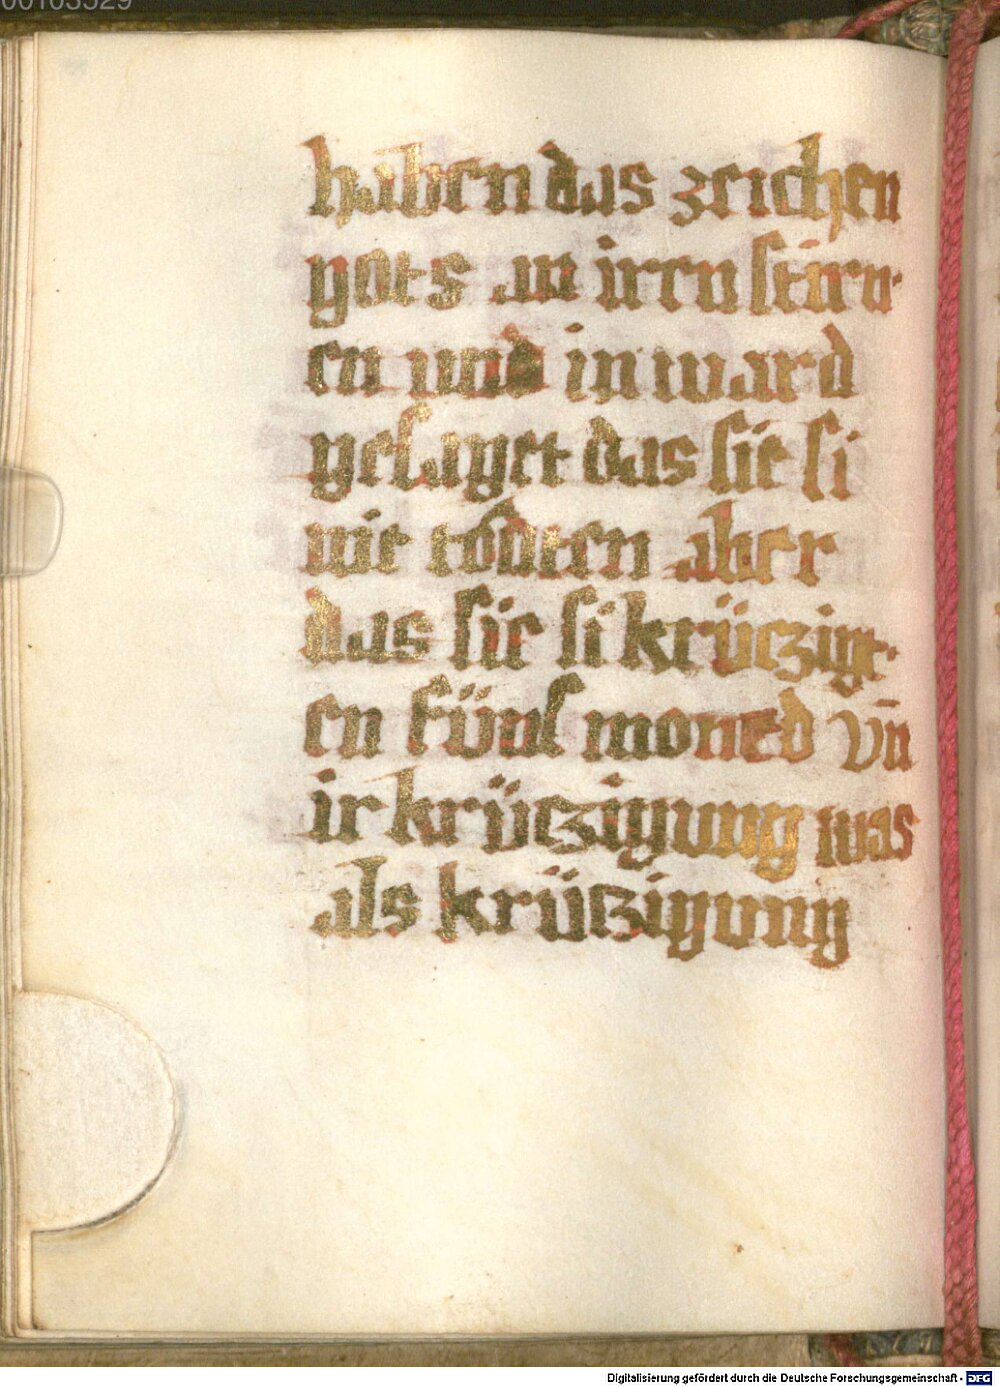 00103529
haben das zeichen
gots an iren stirn·
en und in ward
gesaget das sie si
nit tödten aber
das sie si krüczigt·
en fünf moned vn̄
ir krüczigung was
als krüczigung
Digitalisierung gefördert durch die Deutsche Forschungsgemeinschaft - DFG